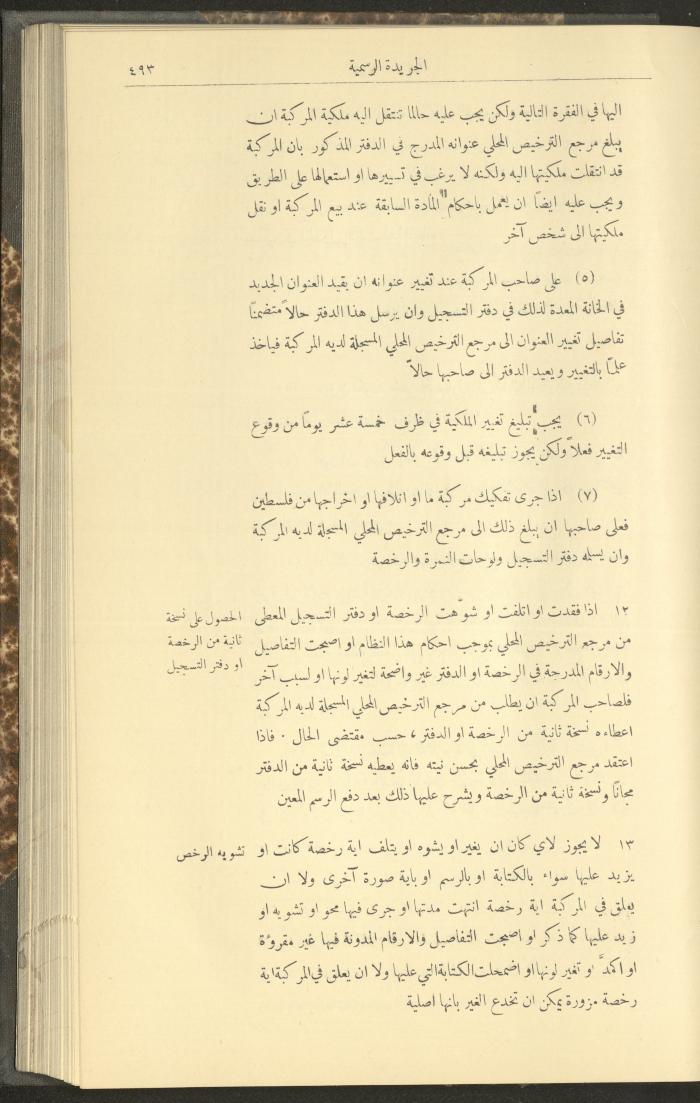 الجريدة الرسمية
٤٩٣
اليها في الفقرة التالية ولكن يجب عليه حالما تنتقل اليه ملكية المركبة ان
يبلغ مرجع الترخيص المحلي عنوانه المدرج في الدفتر المذكور بان المركبة
قد انتقلت ملكيتها اليه ولكنه لا يرغب في تسييرها او استعمالها على الطريق
ويجب عليه ايضًا ان يعمل باحكام المادة السابقة عند بيع المركبة او نقل
ملكيتها الى شخص آخر
(٥) على صاحب المركبة عند تغيير عنوانه ان يقيد العنوان الجديد
في الخانة المعدة لذلك في دفتر التسجيل وان يرسل هذا الدفتر حالاً متضمنًا
تفاصيل تغيير العنوان الى مرجع الترخيص المحلي المسجلة لديه المركبة فياخذ
علمًا بالتغيير ويعيد الدفتر الى صاحبها حالاً
(٦) يجب تبليغ تغيير الملكية في ظرف خمسة عشر يومًا من وقوع
التغيير فعلاً ولكن يجوز تبليغه قبل وقوعه بالفعل
(٧) اذا جرى تفكيك مركبة ما او اتلافها او اخراجها من فلسطين
فعلى صاحبها ان يبلغ ذلك الى مرجع الترخيص المحلي المسجلة لديه المركبة
وان يسله دفتر التسجيل ولوحات النمرة والرخصة
١٢ اذا فقدت او اتلفت او شوّهت الرخصة او دفتر التسجيل المعطى
من مرجع الترخيص المحلي بموجب احكام هذا النظام او اصبحت التفاصيل
والارقام المدرجة في الرخصة او الدفتر غير واضحة لتغير لونها او لسبب آخر
فلصاحب المركبة ان يطلب من مرجع الترخيص المحلي المسجلة لديه المركبة
اعطاءه نسخة ثانية من الرخصة او الدفتر ، حسب مقتضى الحال . فاذا
اعتقد مرجع الترخيص المحلي بحسن نيته فانه يعطيه نسخة ثانية من الدفتر
مجانًا ونسخة ثانية من الرخصة ويشرح عليها ذلك بعد دفع الرسم المعين
الحصول على نسخة
ثانية من الرخصة
او دفتر التسجيل
١٣ لا يجوز لاي كان ان يغير او يشوه او يتلف اية رخصة كانت او
يزيد عليها سواء بالكتابة او بالرسم او باية صورة آخرى ولا ان
يعلق في المركبة اية رخصة انتهت مدتها او جرى فيها محو او تشويه او
زيد عليها كما ذكر او اصبحت التفاصيل والارقام المدونة فيها غير مقروءة
او اكمدّ او تغير لونها او اضمحلت الكتابة التي عليها ولا ان يعلق في المركبة اية
رخصة مزورة يمكن ان تخدع الغير بانها اصلية
تشويه الرخص